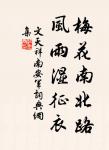 梅花南北路
風雨濕征衣
文天祥南安軍詞典網
集